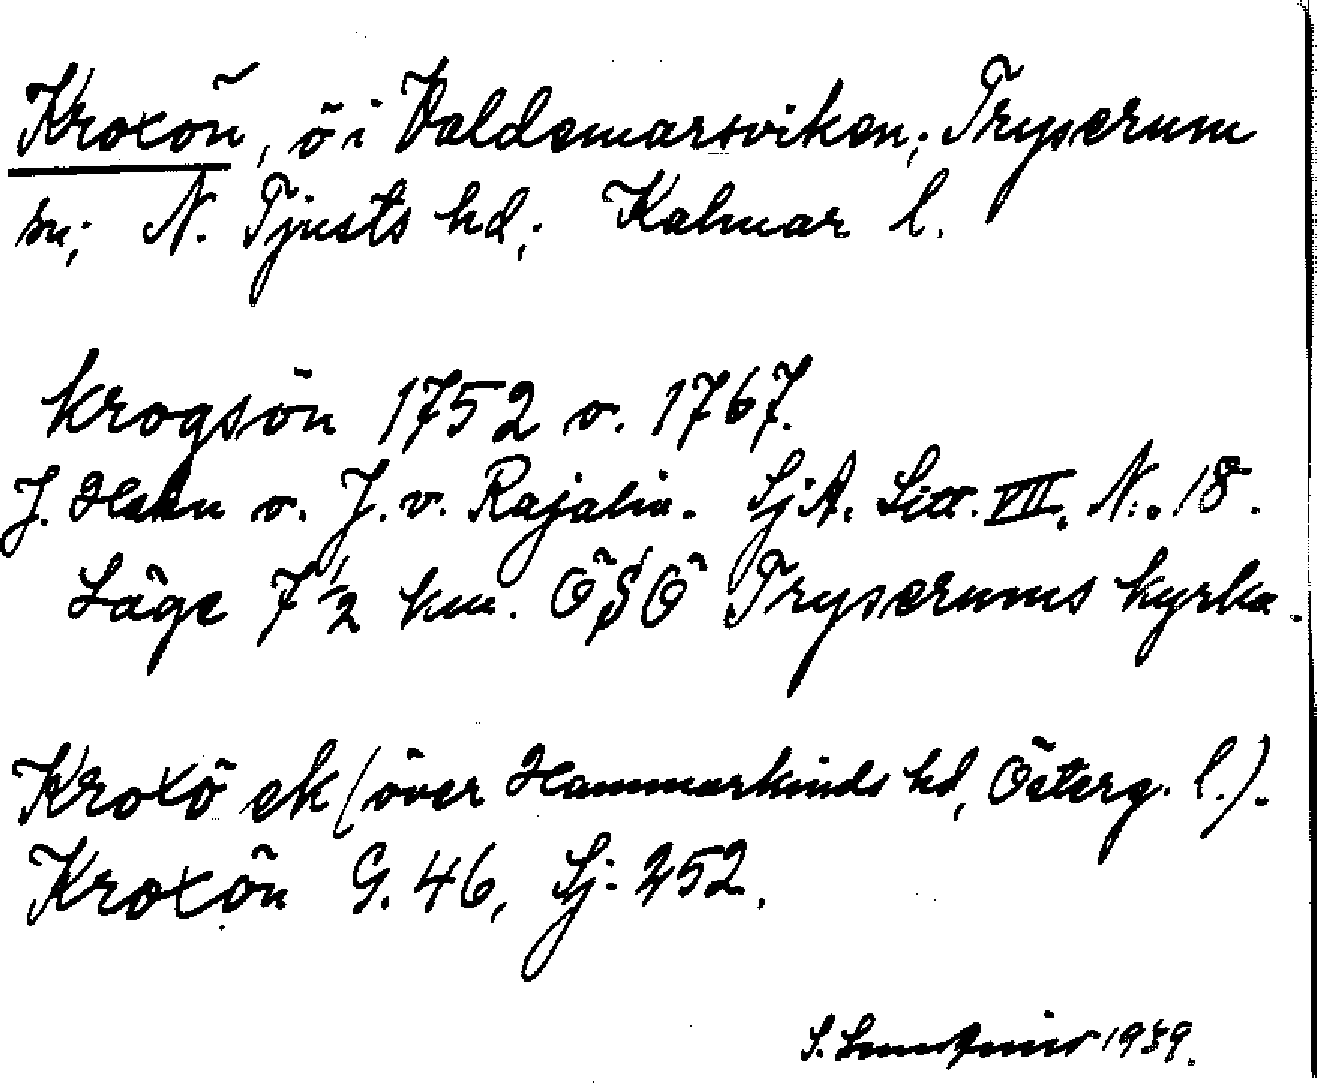 Kroxön, ö i Valdemarsviken; Tryserum
sn; N. Tjusts hd; Kalmar l.
Krogsön 1752 o. 1767.
J. Hahn o. J. v. Rajalin. SjA. Litt. VII. N:. 18.
Läge 7 1/2 km. ÖSÖ Tryserums kyrka.
Kroxö ek (över Hammarkinds hd, Österg. l.).
Kroxön G. 46, Sj. 252.
S. 1939.